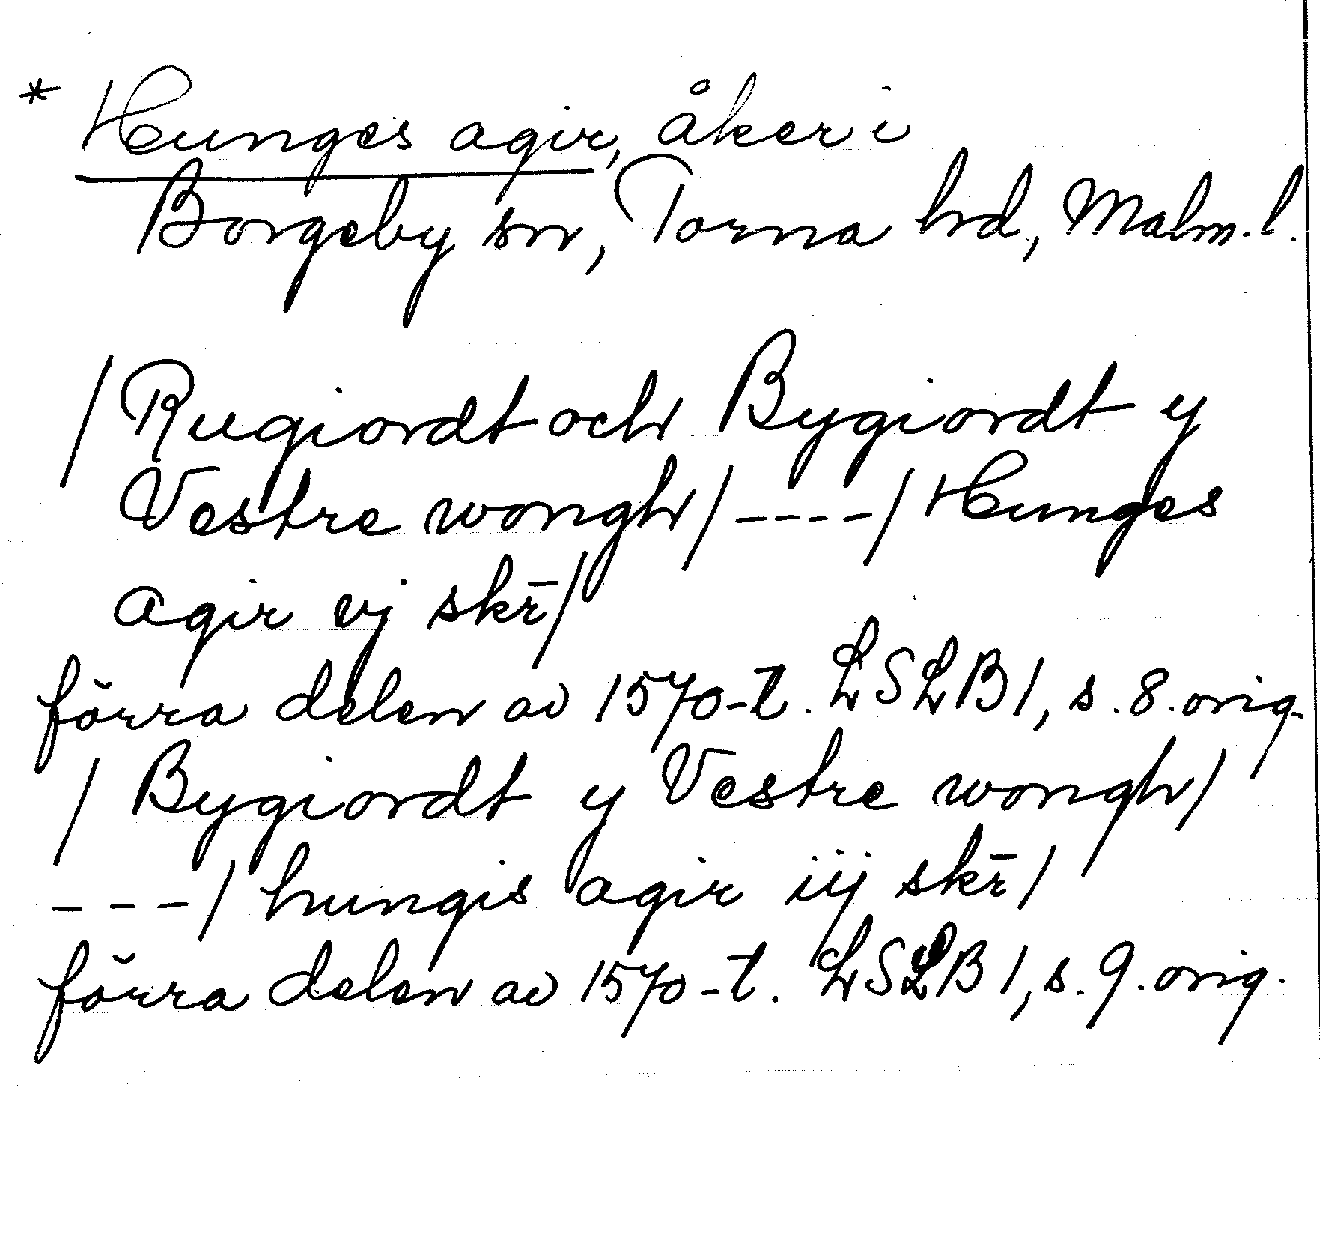 * Hunges agir, åker i
Borgeby sn, Torna hd, Malm. l.
/Rugiordt och Bygiordt y
Vestre wongh/----/Hunges
agir vj skr̄/
förra delen av 1570-t. LSLB1, s. 8. orig.
/Bygiordt y Vestre wongh/
---/hungis agir iij skr̄/
förra delen av 1570-t. LSLB1, s. 9. orig.